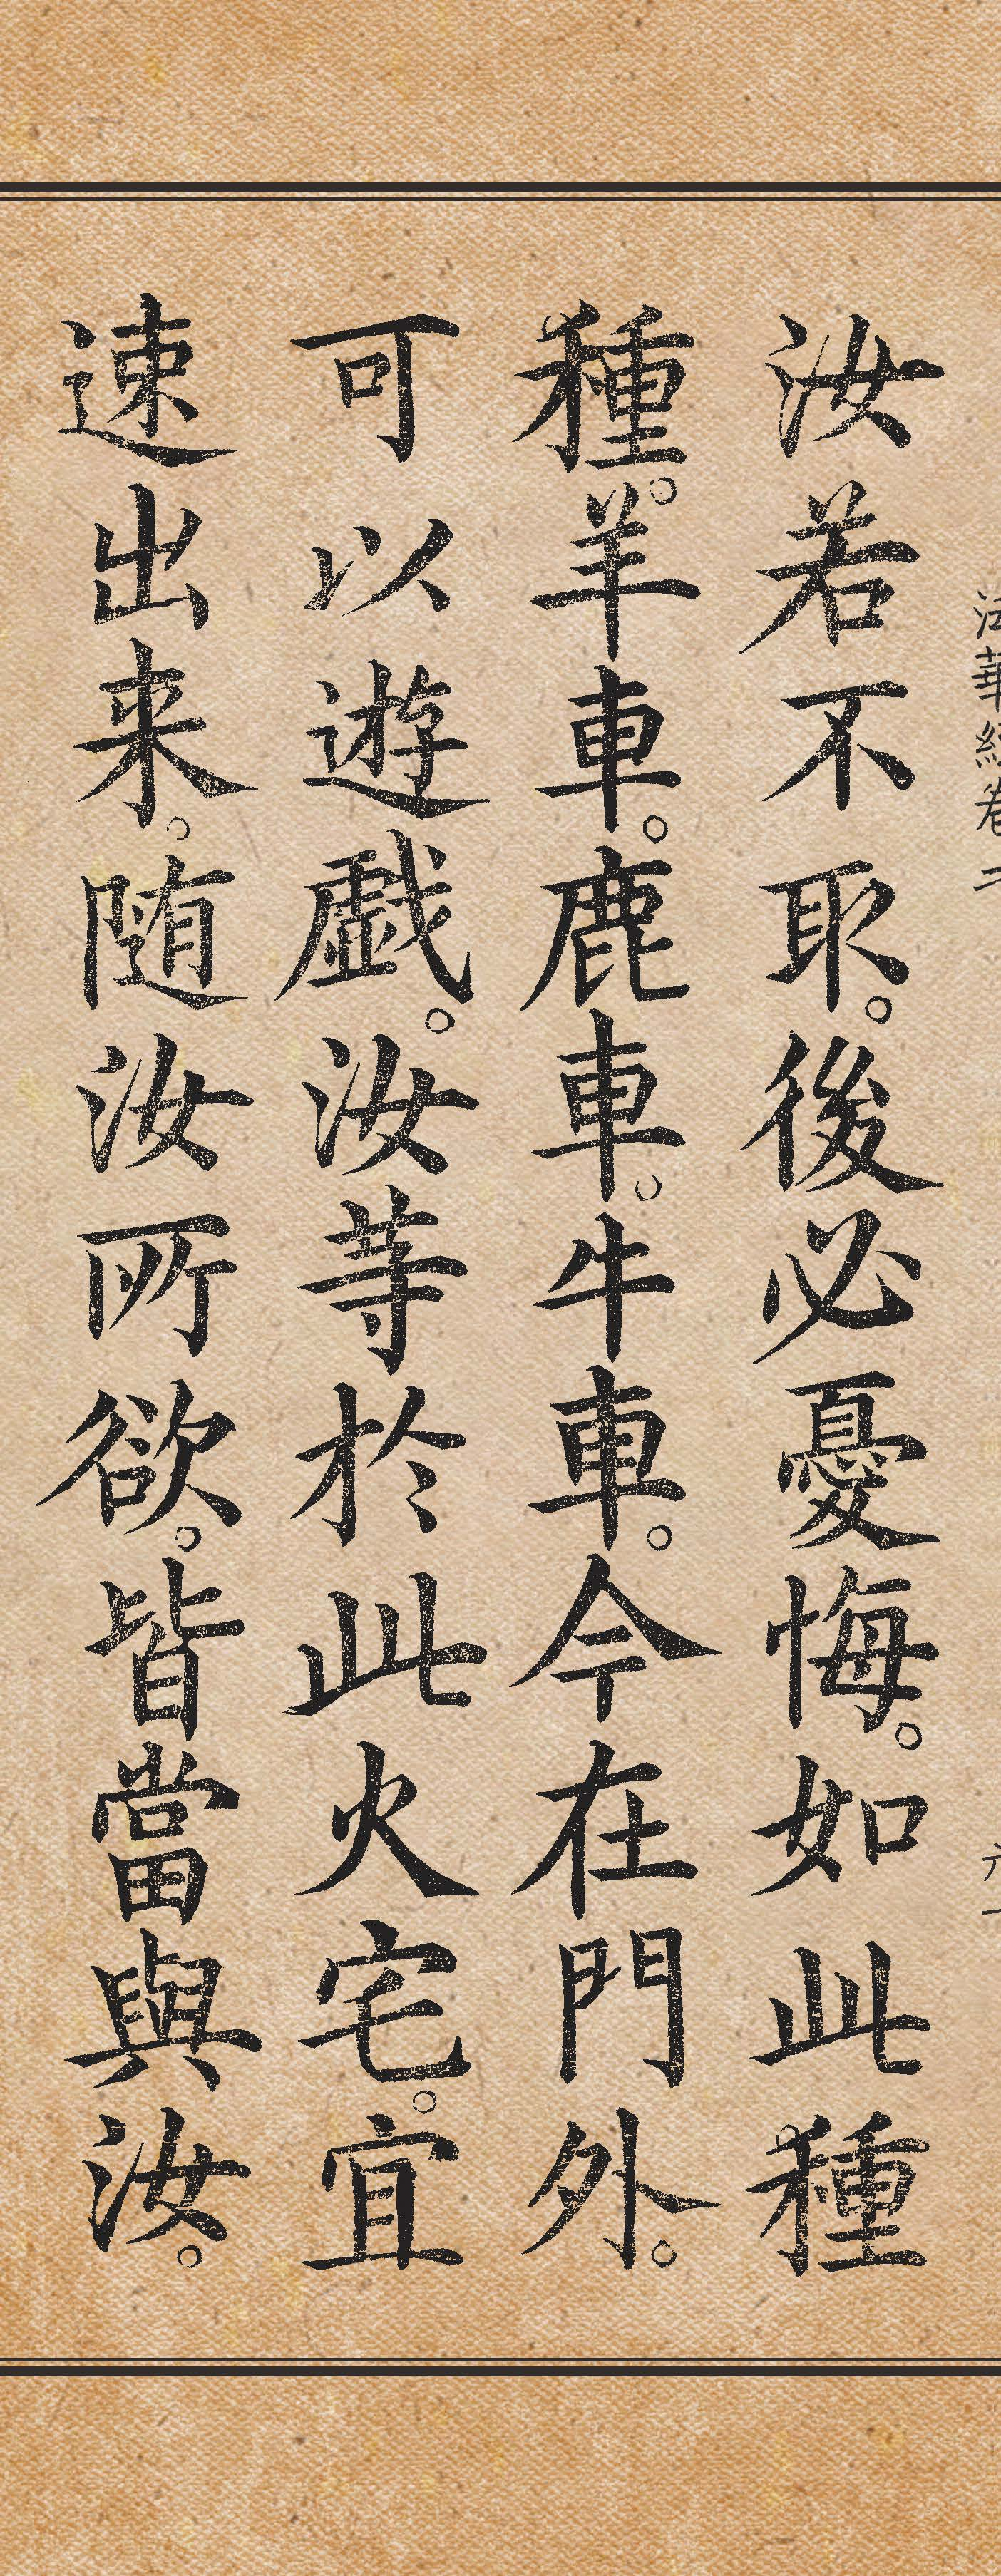 法華經卷二
汝若不取。後必憂悔。如此種
種。羊車。鹿車。牛車。今在門外。
可以遊戲。汝等於此火宅。宜
速出来。随汝所欲。皆當與汝。